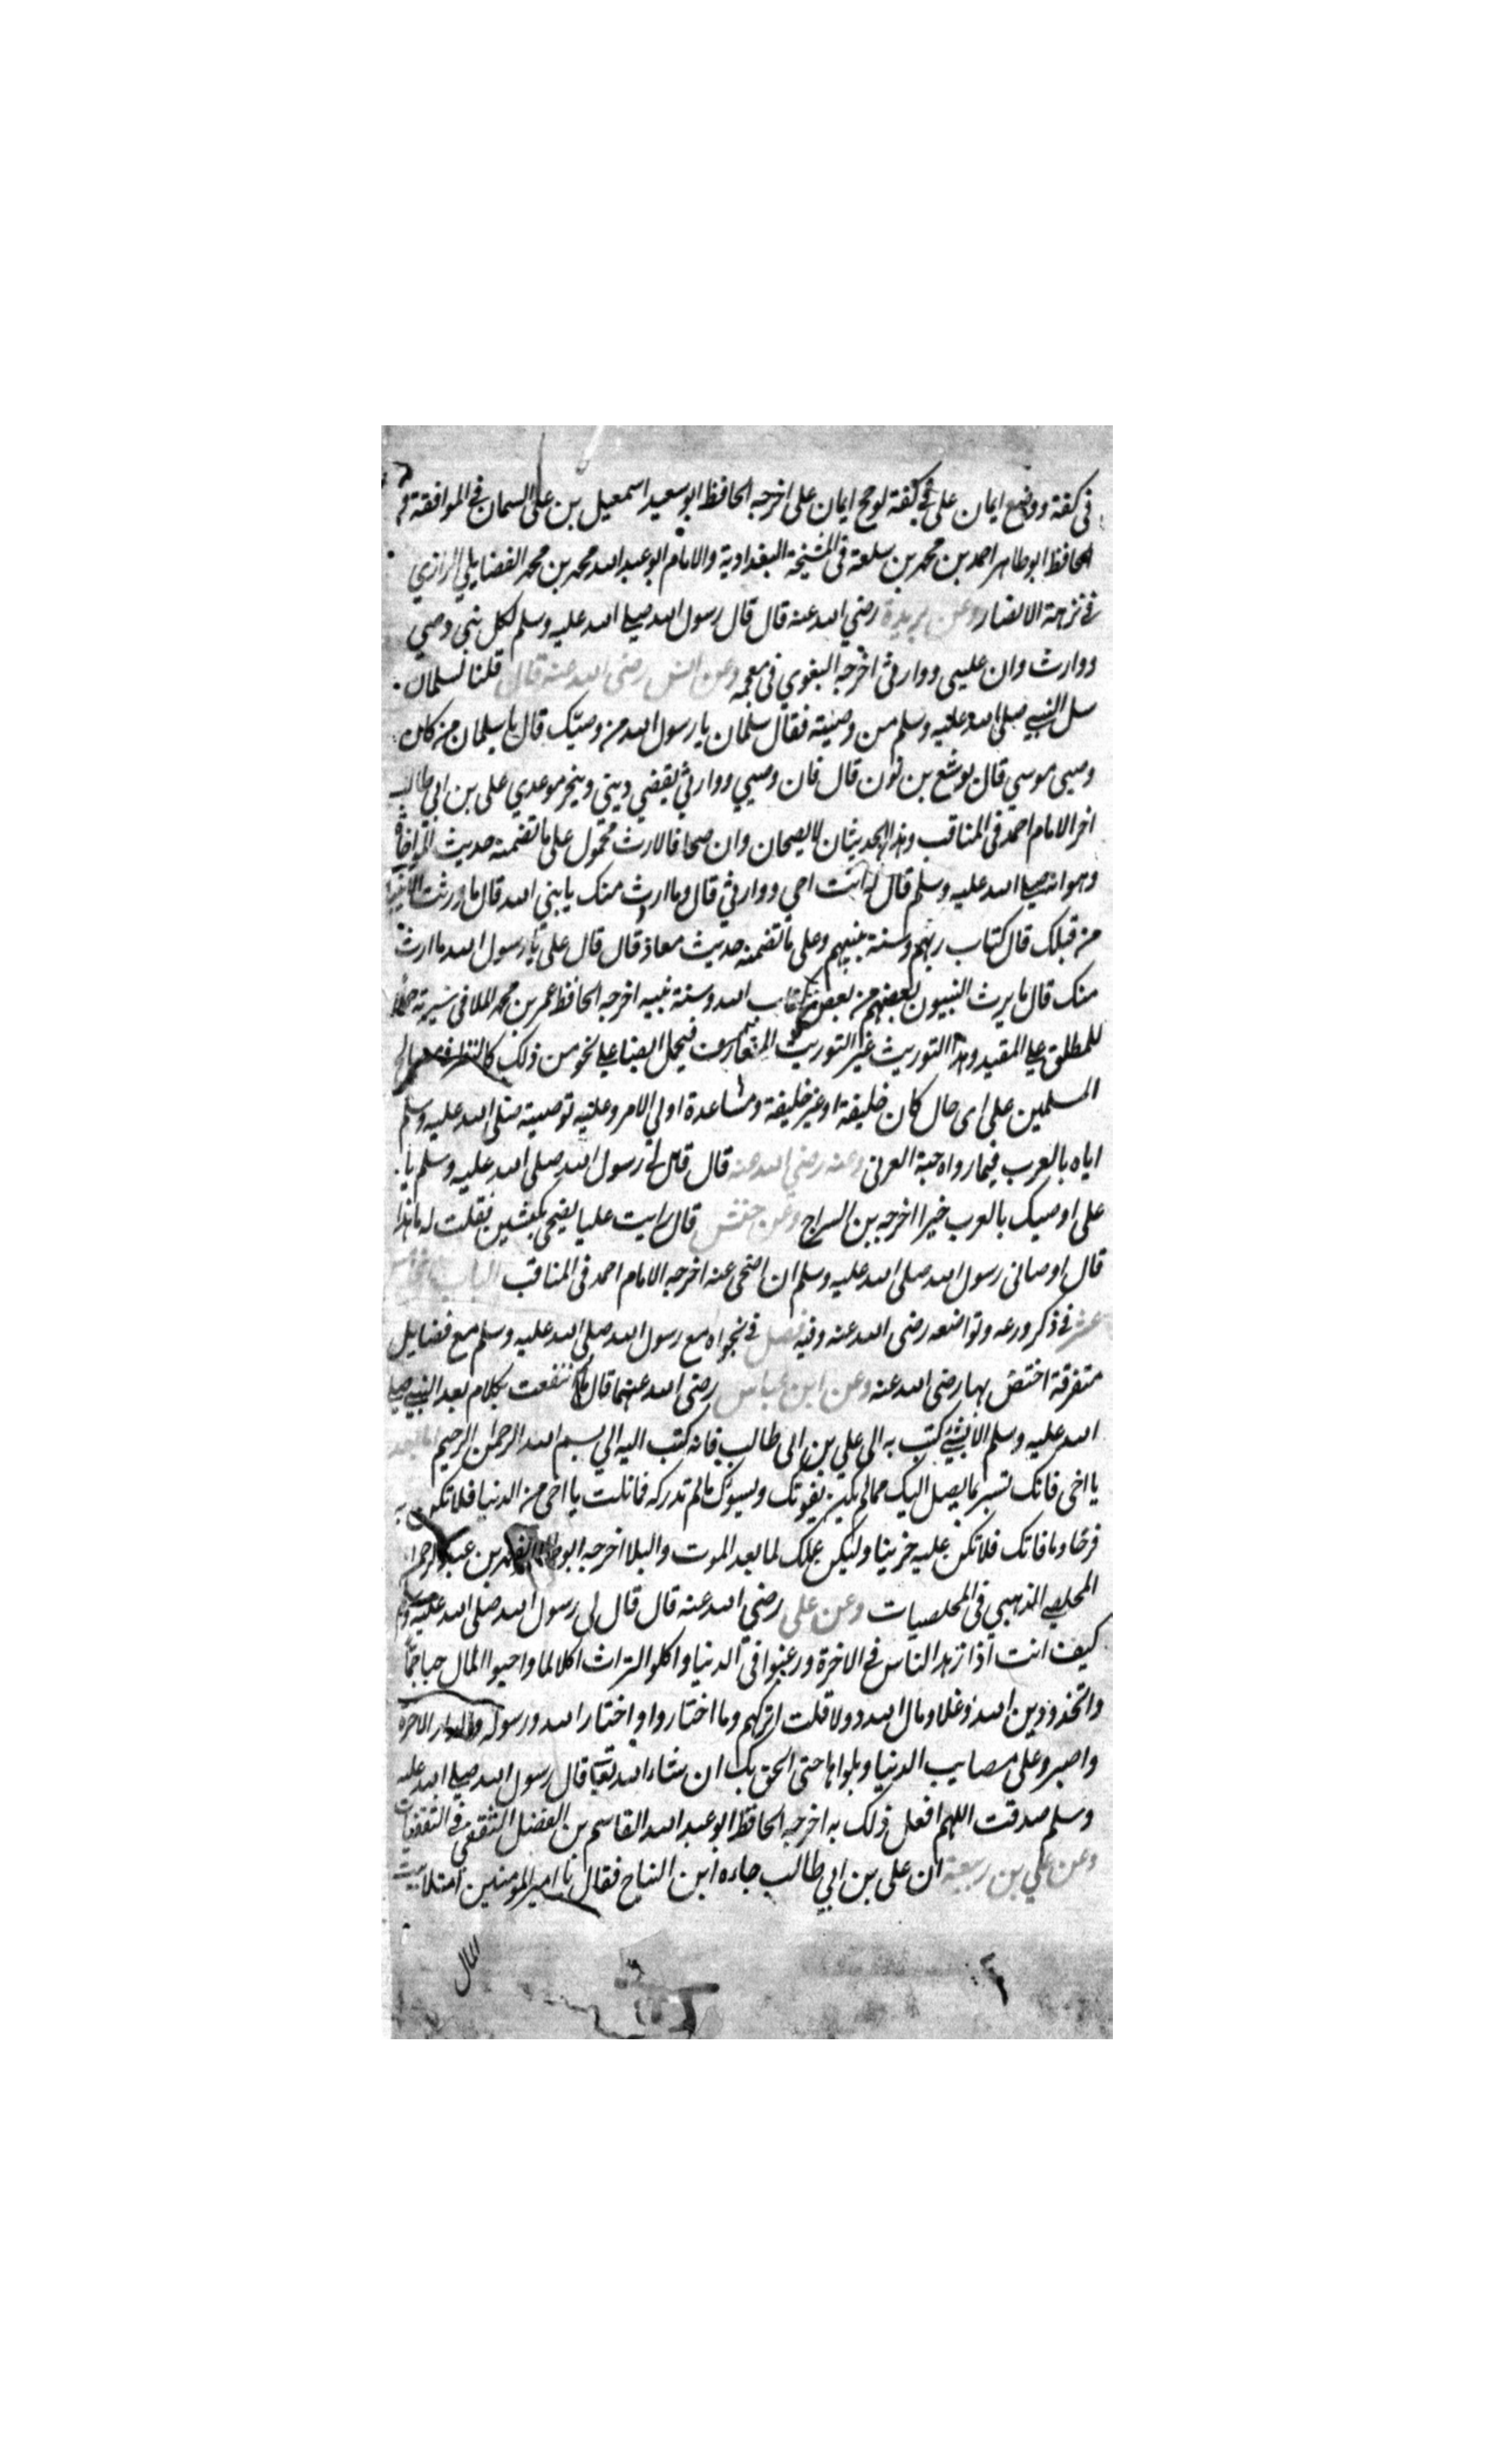 فى كفة ووضع ايمان على فى كفة لوجح ايمان على اخرجه الحافظ ابو سعيد اسمعيل بن على السمان فى الموافقة و
الحافظ ابو طاهر احمد بن محمد بن سلعة فى المشيخة البغدادية والامام ابو عبد الله محمد بن محمد الفضايلي الرازي
فى نزهة الابصار وعن بريدة رضي الله عنه قال قال رسول الله صلى الله عليه وسلم لكل نبى وصي
ووارث وان عليى ووارثى اخرجه البغوي فى معجمه وعن انس رضى الله عنه قال قلنا لسلمان
سل النبي صلى الله عليه وسلم من وصيته فقال سلمان يا رسول الله من وصيّك قال يا سلمان من كان
وصى موسي قال يوشع بن نون قال فان وصيي ووارثي يقضي ديني وينجز موعدي على بن ابي طالب
اخر الامام احمد فى المناقب وهذا الحديثان لا يصحان وان صحا فالارث محمول على ما تضمنه حديث المؤاخاة
وهو انه صلى الله عليه وسلم قال له انت اخى ووارثي قال وما ارث منك يا بني الله قال ما ورثت الانبيا
من قبلك قال كتاب ربهم وسنة نبيهم وعلى ما تضمنه حديث معاذ قال قال على يا رسول الله ما ارث
منك قال ما يرث النبيون بعضهم من بعض كتاب الله وسنة نبيه اخرجه الحافظ عمر بن محمد الملا فى سيرته حملا
للمطلق على المقيد وهذا التوريث غير التوريث المتعارف فيحمل ايضا على نحو من ذلك كالنظر فى مصالح
المسلمين على اى حال كان خليفة او غير خليفة ومساعدة اولي الامر وعليه توصيته صلى الله عليه وسلم
اياه بالعرب فيما رواه حبة العرنى وعنه رضي الله عنه قال قال لى رسول الله صلى الله عليه وسلم يا
على اوصيك بالعرب خيرا اخرجه بن السراج وعن حنش قال رايت عليا يضحى بكبشين فقلت له ما هذا
قال اوصانى رسول الله صلى الله عليه وسلم ان اضحى عنه اخرجه الامام احمد فى المناقب الباب الخامس
عشر فى ذكر ورعه وتواضعه رضى الله عنه وفيه فصل فى نجواه مع رسول الله صلى الله عليه وسلم مع فضايل
متفرقة اختص بها رضى الله عنه وعن ابن عباس رضى الله عنهما قال ما انتفعت بكلام بعد النبي صلى
الله عليه وسلم الا بشئ كتب به الى على بن ابى طالب فانه كتب اليه الي بسم الله الرحمن الرحيم اما بعد
يا اخى فانك تسر بما يصل اليك مما لم يكن يفوتك ويسوؤك ما لم تدركه فما نلت يا اخى من الدنيا فلا تكن به
فرحا وما فاتك فلا تكن عليه حزينا وليكن عملك لما بعد الموت والبلا اخرجه ابو طاهر بن عبد الرحمن
المخلص الذهبي فى المخلصيات وعن على رضي الله عنه قال قال لى رسول الله صلى الله عليه وسلم
كيف انت اذا زهد الناس فى الاخرة ورغبوا فى الدنيا واكلوا التراث اكلا لما واحبوا المال حبا جما
واتخذو دين الله دغلا ومال الله دولا قلت اتركهم وما اختاروا واختار الله ورسوله والدار الاخرة
واصبر على مصايب الدنيا وبلواها حتى الحق بك ان شاء الله تعالى قال رسول الله صلى الله عليه
وسلم صدقت اللهم افعل ذلك به اخرجه الحافظ ابو عبد الله القاسم بن الفضل الثقفى فى الثقفيات
وعن علي بن ربيعة ان على بن ابي طالب جاءه ابن النباح فقال يا امير المومنين امتلا بيت
المال